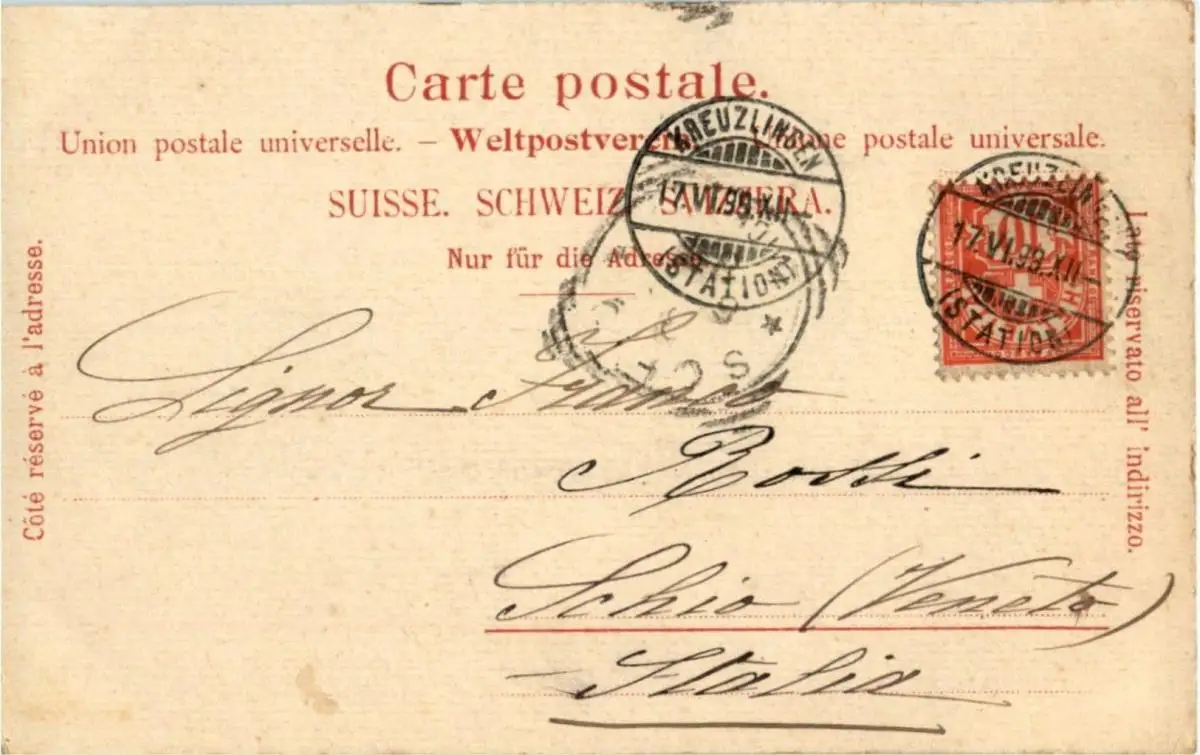 Carte postale.
Union postale universelle. – Weltpostverein. – Unione postale universale.
SUISSE. SCHWEIZ. SVIZZERA.
Nur für die Adresse
Côté réservé à l'adresse.
Lato riservato all' indirizzo.
KREUZLINGEN
17.VI.99.XII
(STATION)
KREUZLINGEN
17.VI.99.XII
(STATION)
10
Signor
Rossi
Schio (Veneto)
Italia